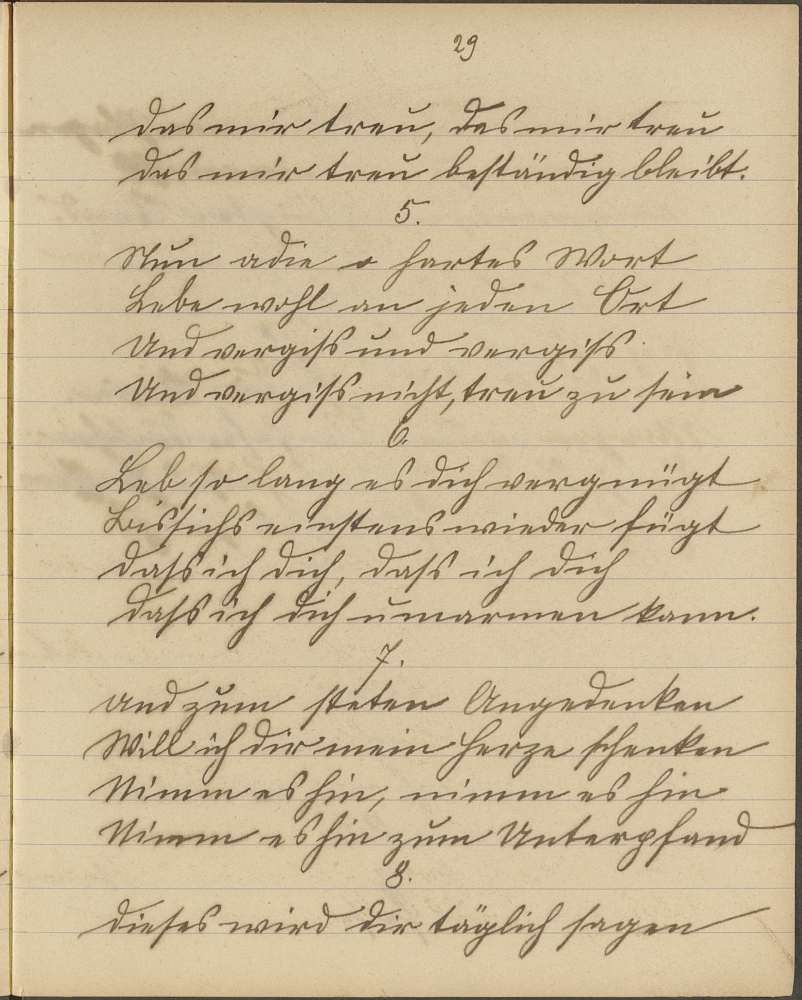 29
das mir treu, das mir treu
das mir treu beständig bleibt.
5.
Nun adie o hartes Wort
Lebe wohl an jeden Ort
Und vergiss und vergiss
Und vergiss nicht, treu zu sein
6.
Leb so lang es dich vergnügt
Bis sichs einstens wieder fügt
dass ich dich, dass ich dich
dass ich dich umarmen kann.
7.
und zum steten Angedenken
Will ich dir mein Herze schenken
Nimm es hin, nimm es hin
Nimm es hin zum Unterpfand
8.
dieses wird dir täglich sagen